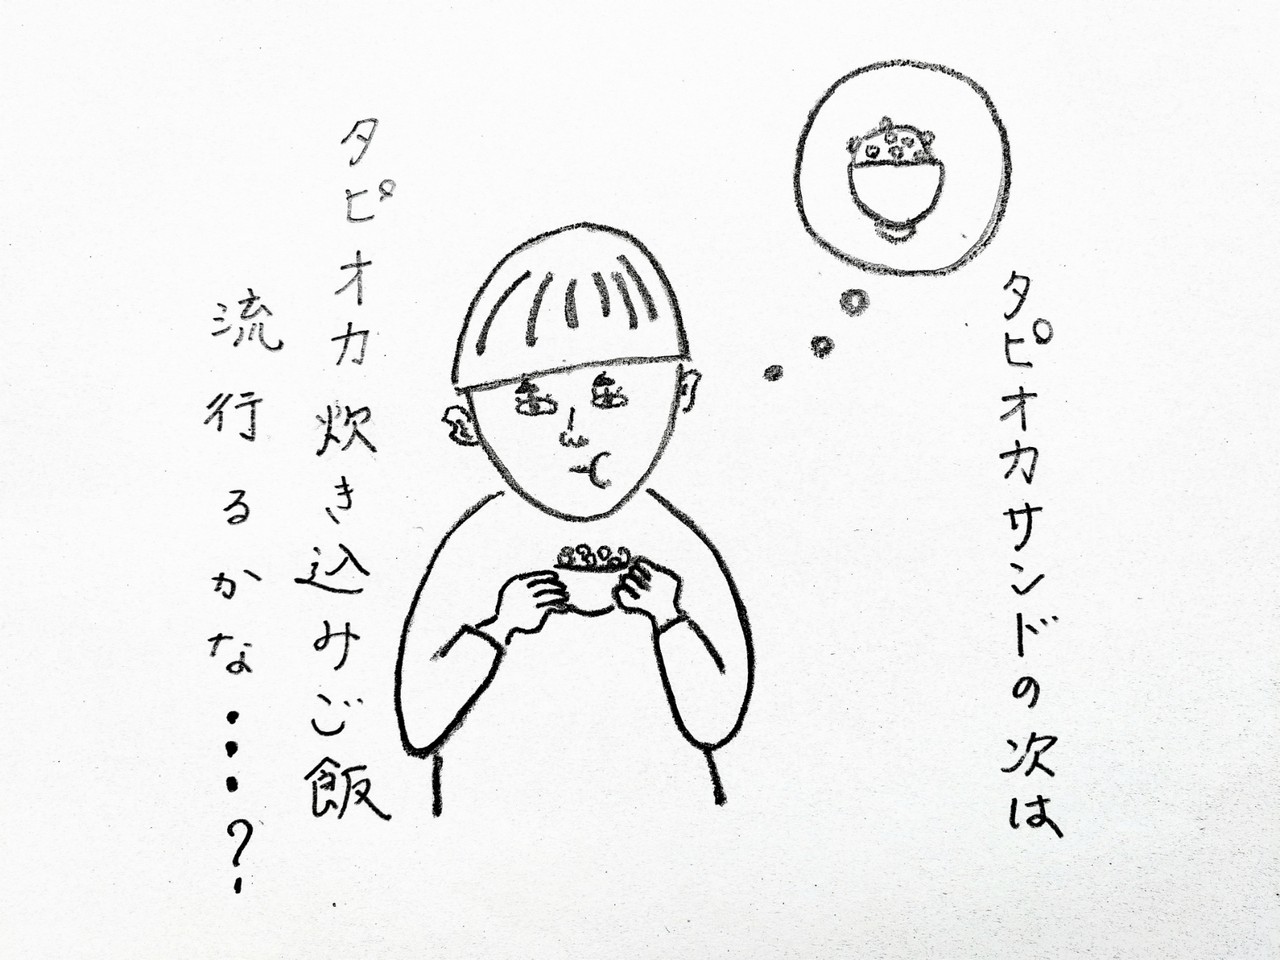 タピオカサンドの次は
タピオカ炊き込みご飯
流行るかな・・・・?